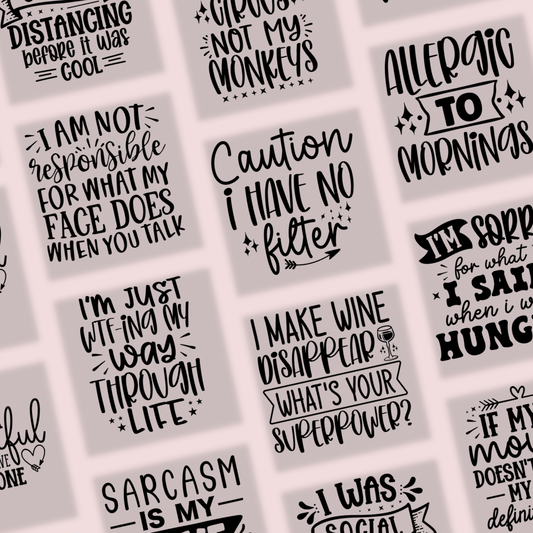 DISTANCING
before it was
COOL
CIRCUS
NOT MY
MONKEYS
ALLERGIC
TO
MORNINGS
I AM NOT
responsible
FOR WHAT MY
FACE DOES
WHEN YOU TALK
Caution
i HAVE NO
filter
I'M SORRY
for what
I SAID
when i w
HUNG
I'M JUST
WTF-ING MY
WAY
THROUGH
LIFE
I MAKE WINE
DISAPPEAR
WHAT'S YOUR
SUPERPOWER?
ful
ONE
SARCASM
IS MY
I WAS
SOCIAL
IF MY
mou
DOESN'T
MY
defini